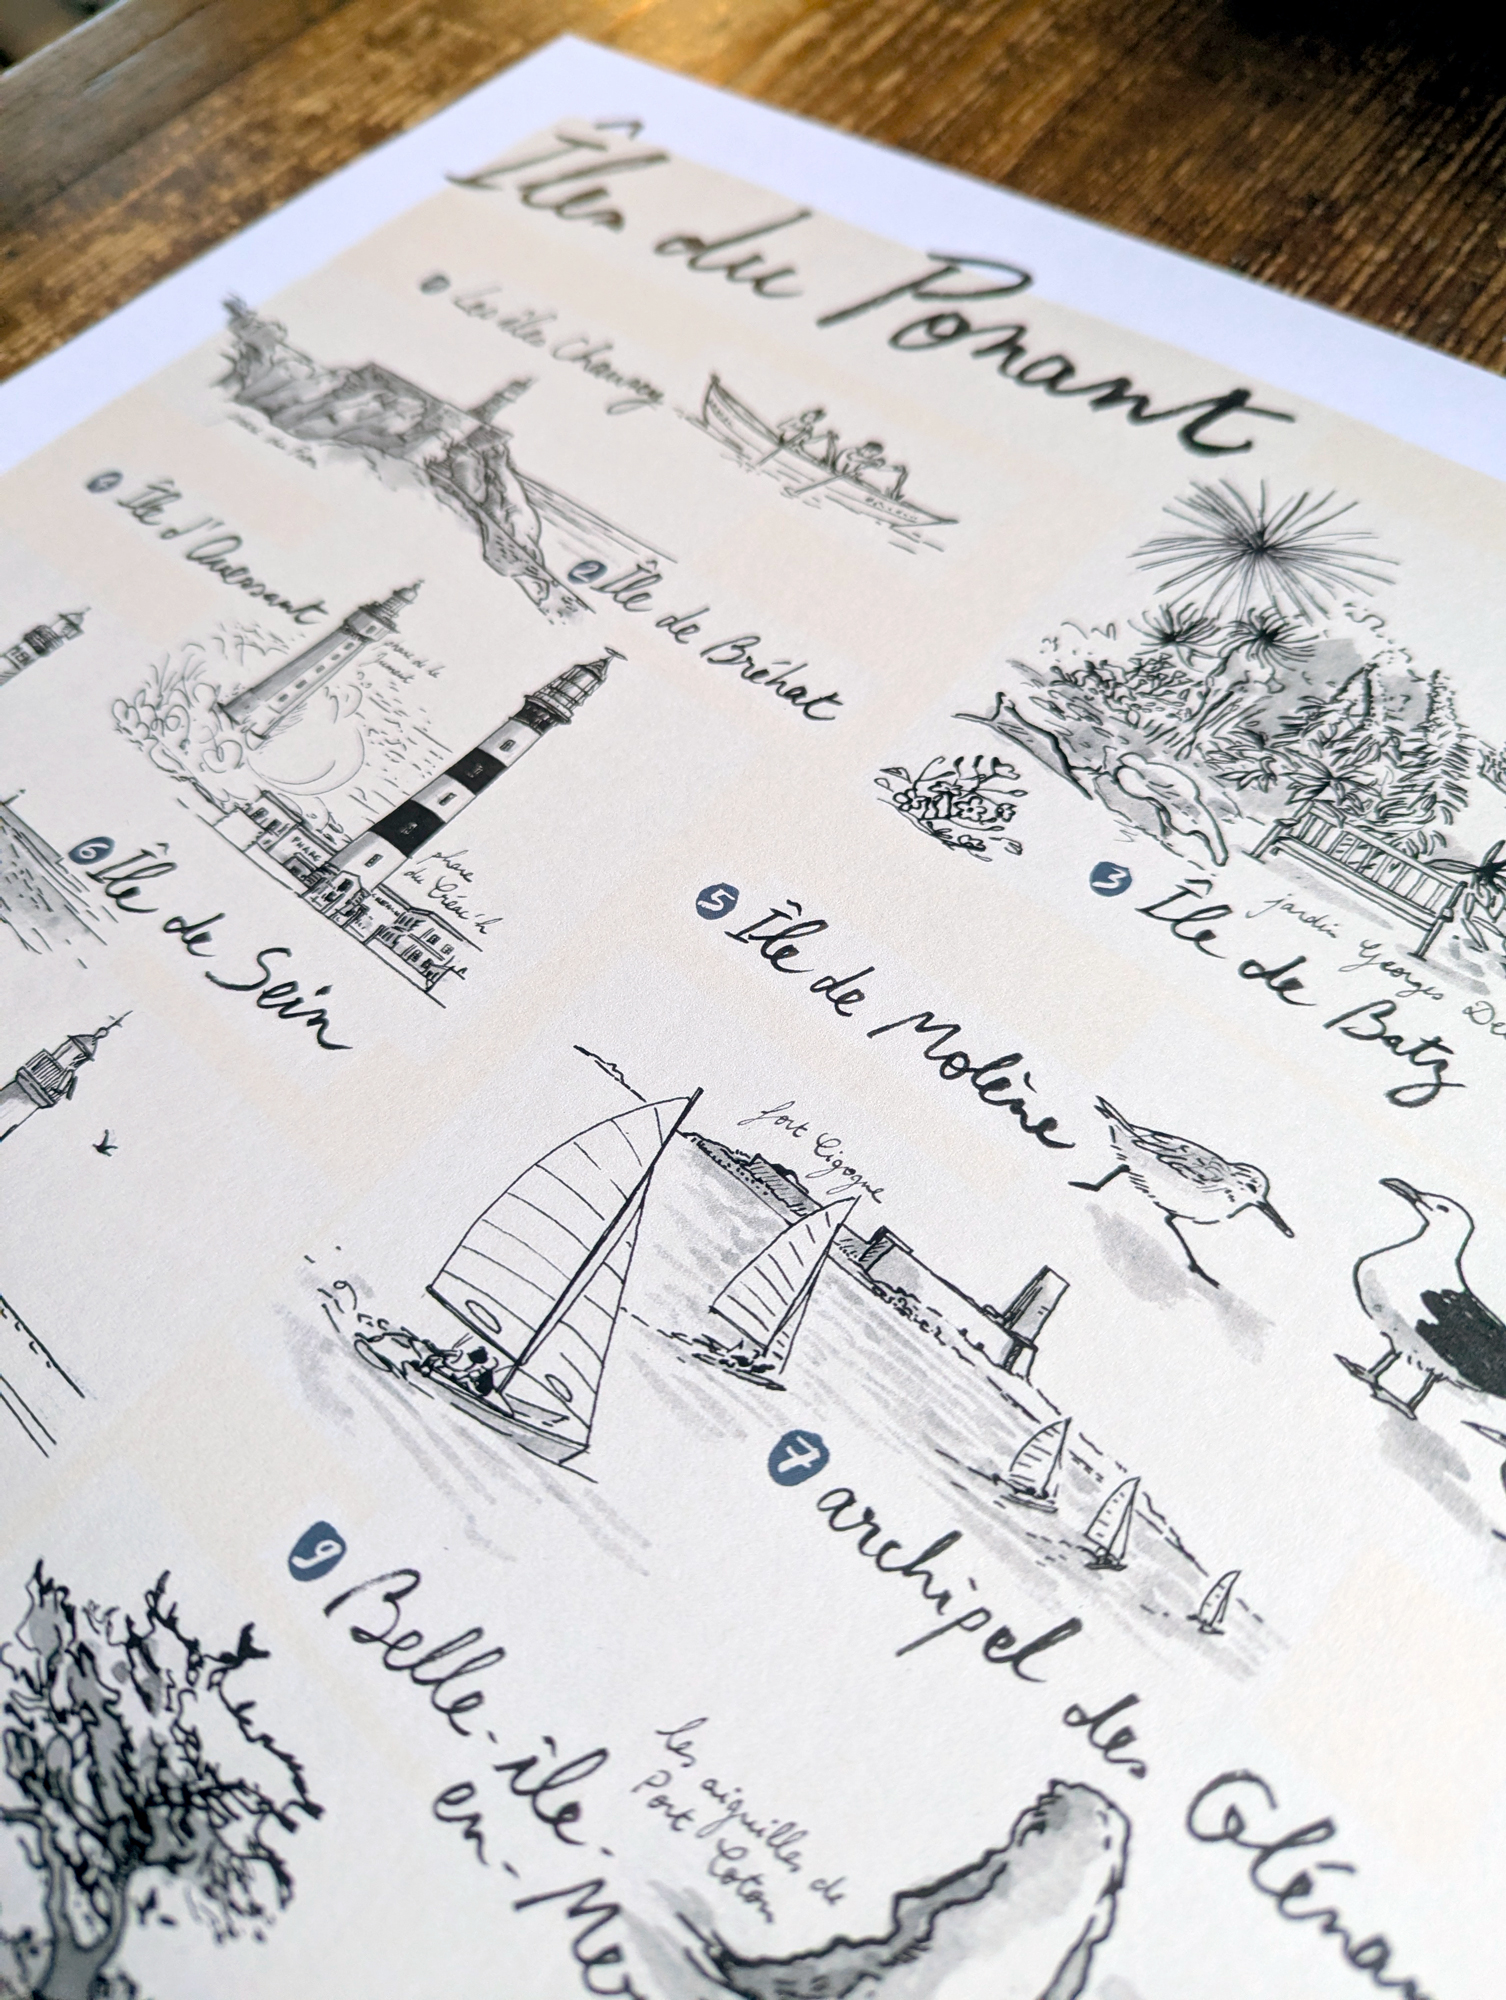 Îles du Ponant
1 Les îles Chausey
2 Île de Bréhat
3 Île de Batz
jardin Georges
4 Île d'Ouessant
phare de la
Jument
PHARE
phare
du Créac'h
5 Île de Molène
6 Île de Sein
fort Cigogne
7 archipel des Glénan
9 Belle-île-
en-Mer
les aiguilles de
Port Coton